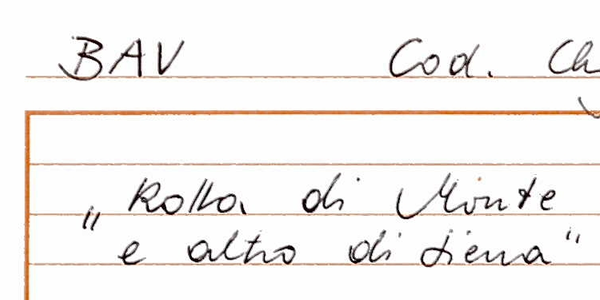 BAV Cod. Ch
„Rolla di Monte
e altro di Siena“